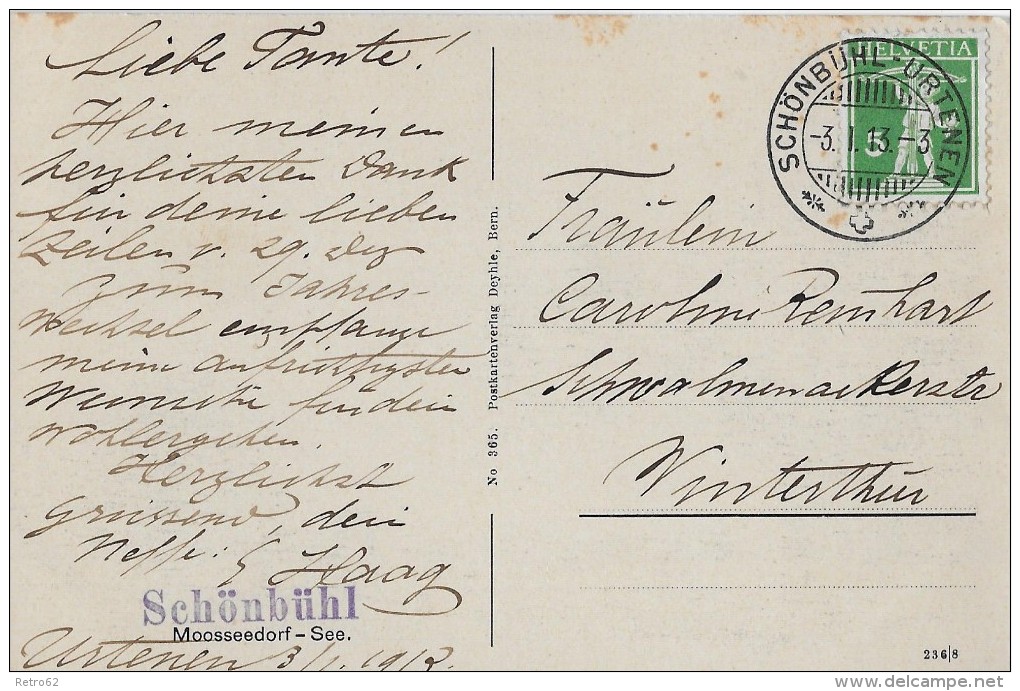 Liebe Tante!
Hier meinen
herzlichsten Dank
für deine lieben
Zeilen v. 29. Dez
Zum Jahres-
wechsel empfange
meine aufrichtigsten
Wünsche für dein
Wohlergehen.
Herzlichst
grüssend, dein
Neffe: Haag
Schönbühl
Moosseedorf-See.
Urtenen 3/1. 1913.
No 365. Postkartenverlag Deyhle, Bern.
HELVETIA
5
SCHÖNBÜHL-URTENEN
-3. I. 13.-3
Fräulein
Caroline Reinhart
Schwalmenackerstr
Winterthur
236|8
Retro62
delcampe.net